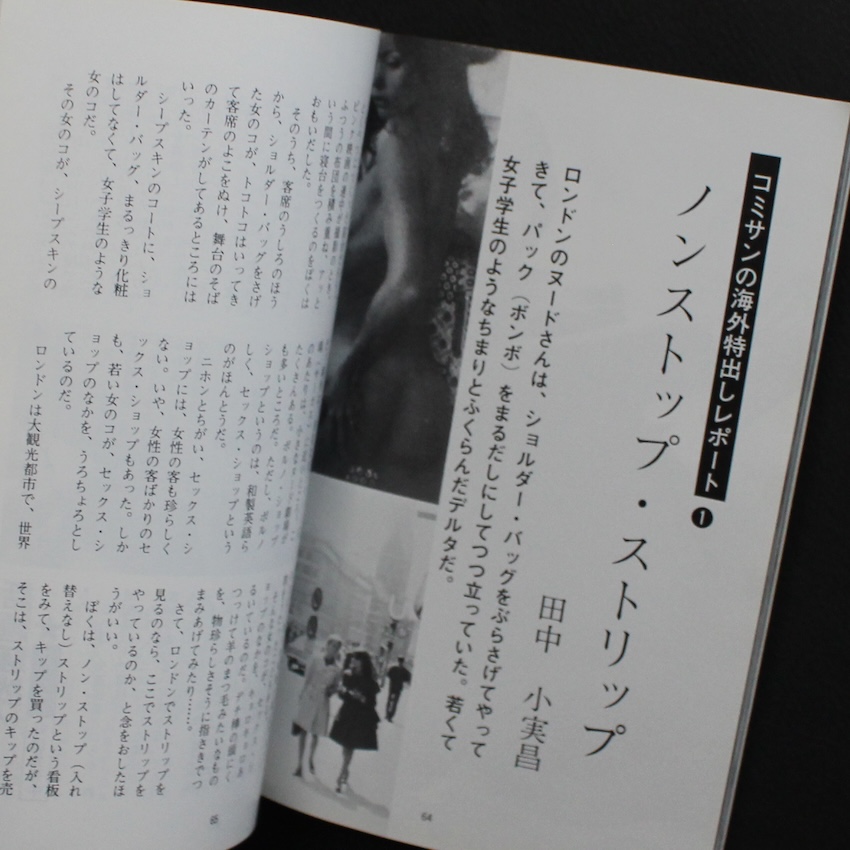 コミサンの海外特出しレポート❶
ノンストップ・ストリップ
田中 小実昌
ロンドンのヌードさんは、ショルダー・バッグをぶらさげてやって
きて、バック（ボンボ）をまるだしにしてつつ立っていた。若くて
女子学生のようなちまりとふくらんだデルタだ。
64
ピンク映画の連中が撮影のとき、
ふつうの布団を積み重ね、アッと
いう間に寝台をつくるのをぼくは
おもいだした。
そのうち、客席のうしろのほう
から、ショルダー・バッグをさげ
た女のコが、トコトコはいってき
て客席のよこをぬけ、舞台のそば
のカーテンがしてあるところには
いった。
シープスキンのコートに、ショ
ルダー・バッグ、まるっきり化粧
はしてなくて、女子学生のような
女のコだ。
その女のコが、シープスキンの
も多いところだ。ただし、ポルノ
ショップというのは、和製英語ら
しく、セックス・ショップという
のがほんとうだ。
ニホンとちがい、セックス・シ
ョップには、女性の客も珍らしく
ない。いや、女性の客ばかりのセ
ックス・ショップもあった。しか
も、若い女のコが、セックス・シ
ョップのなかを、うろちょろとし
ているのだ。
ロンドンは大観光都市で、世界
つっつけて羊のまつ毛みたいなもの
を、物珍しさそうに指さきでつ
まみあげてみたり……。
さて、ロンドンでストリップを
見るのなら、ここでストリップを
やっているのか、と念をおしたほ
うがいい。
ぼくは、ノン・ストップ（入れ
替えなし）ストリップという看板
をみて、キップを買ったのだが、
そこは、ストリップのキップを売
65